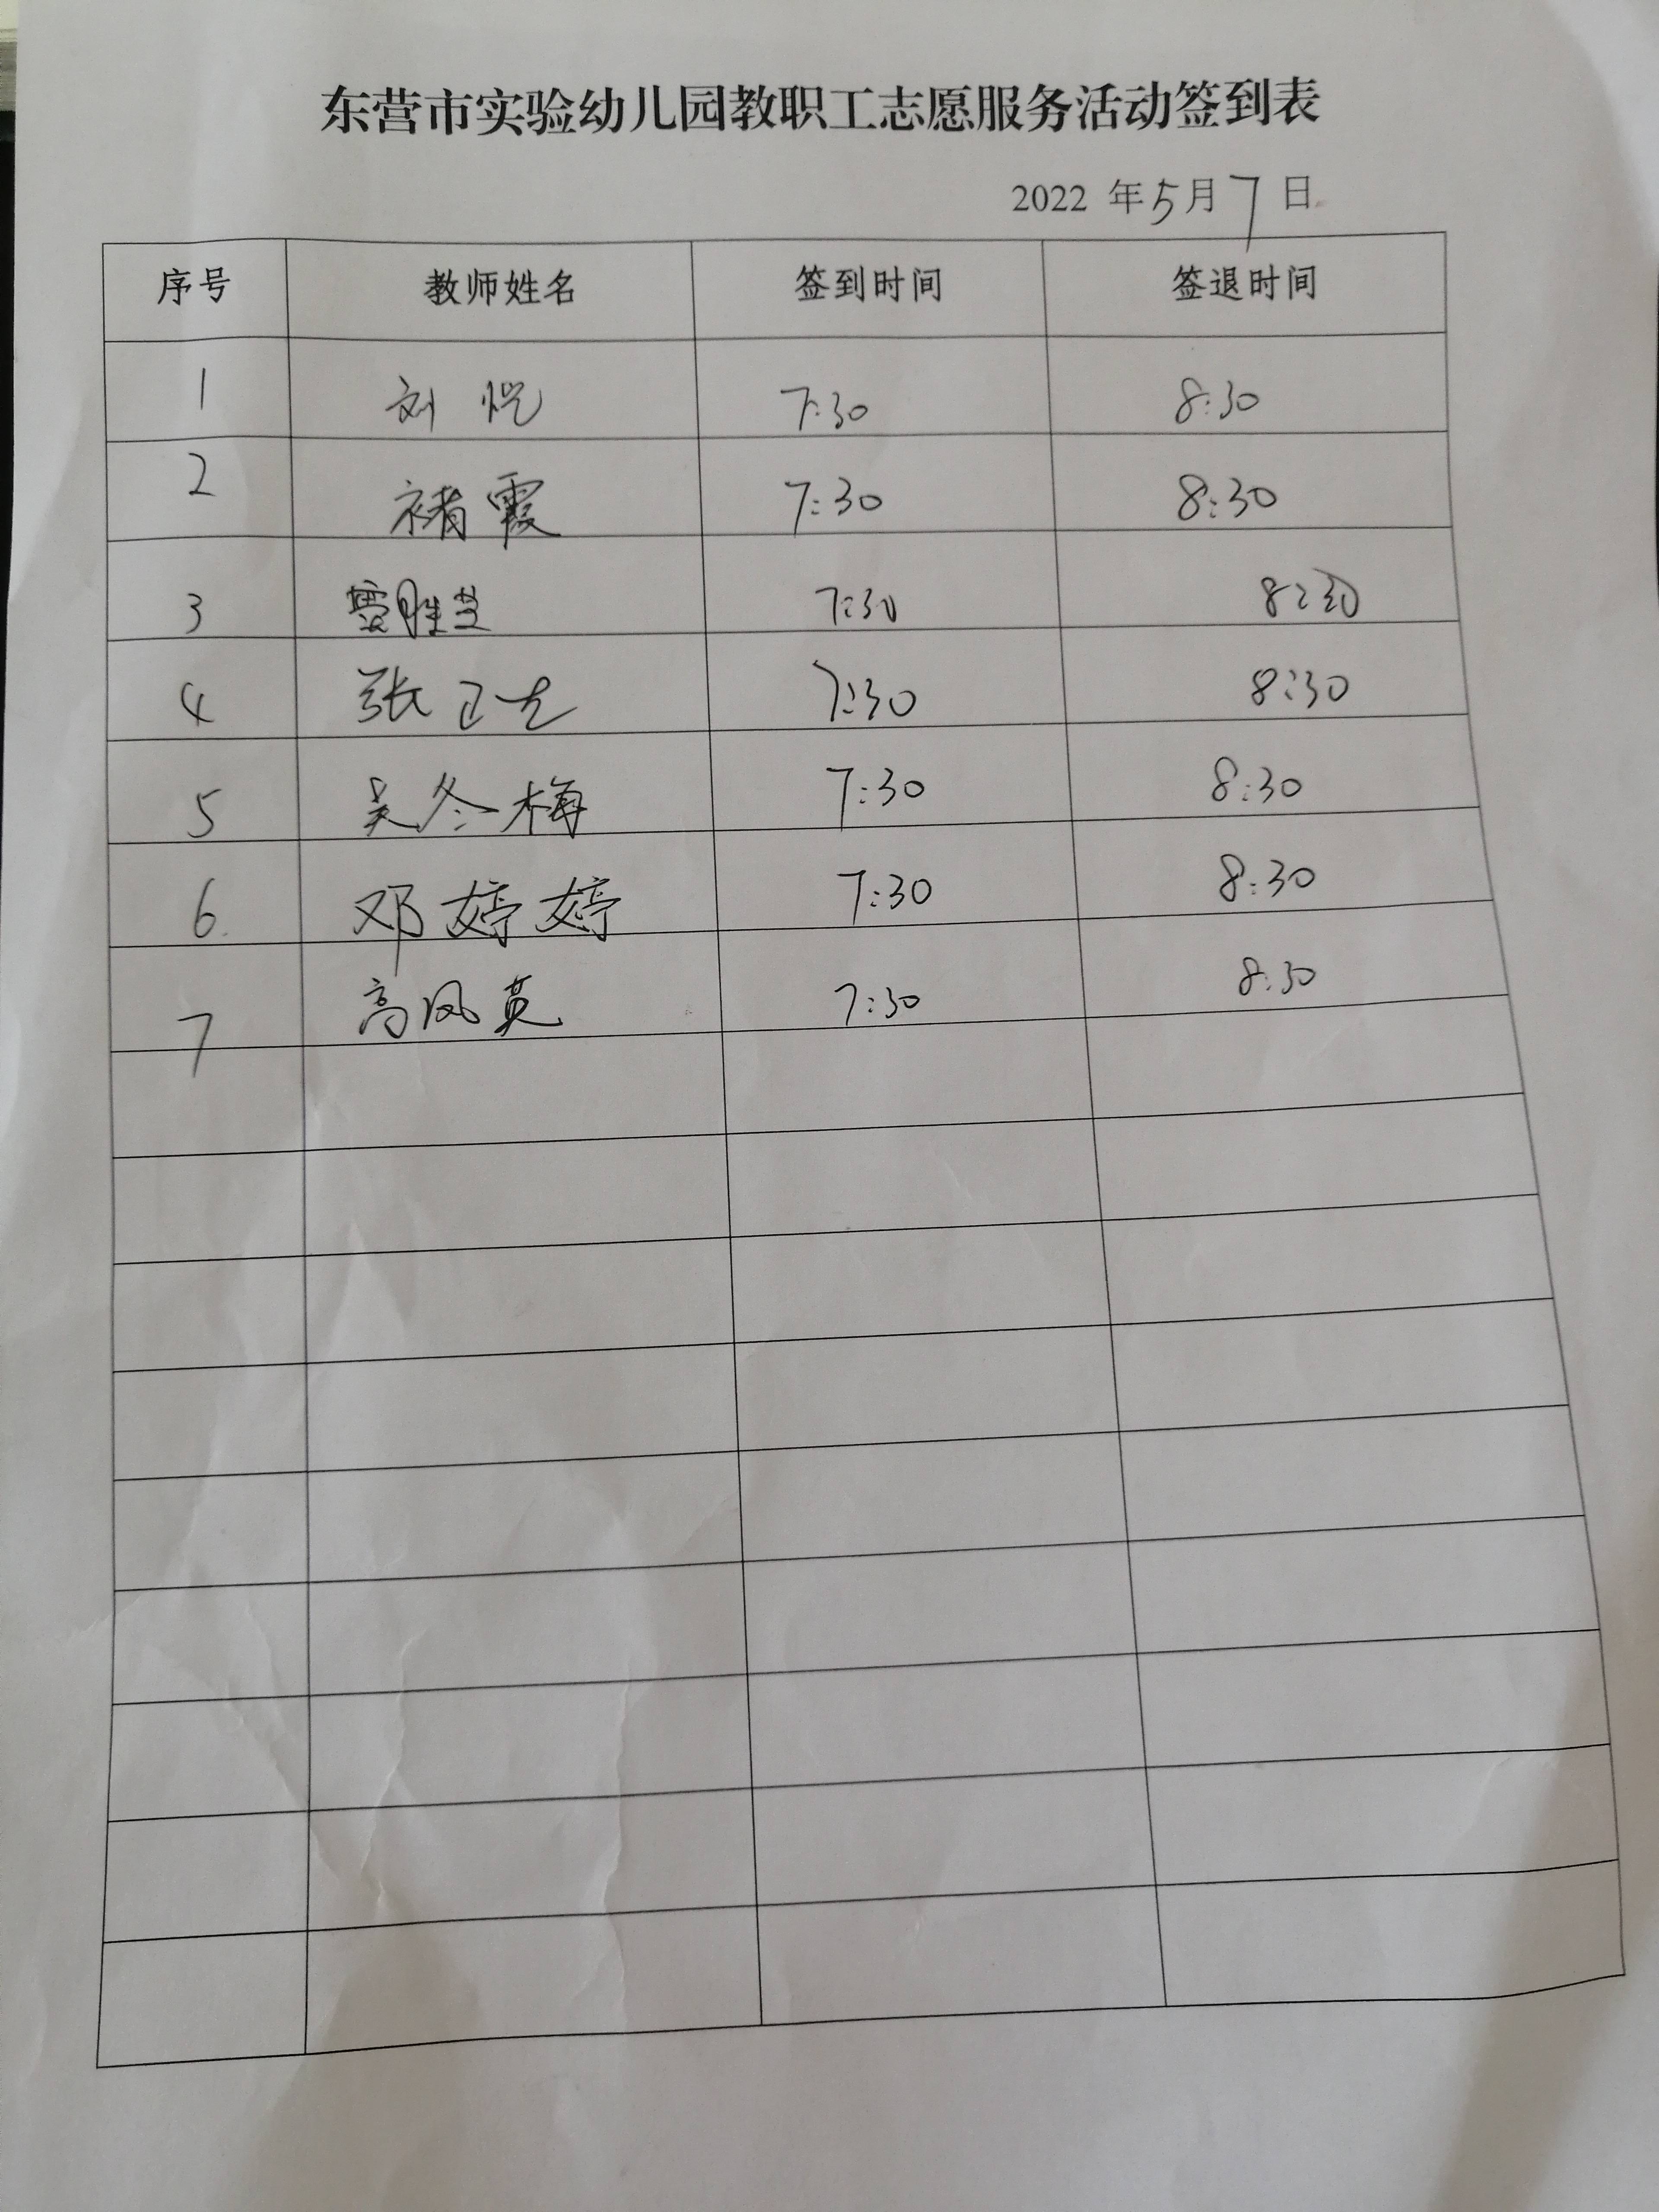 东营市实验幼儿园教职工志愿服务活动签到表
2022 年 5 月 7 日
序号 教师姓名 签到时间 签退时间
1 刘悦 7:30 8:30
2 褚霞 7:30 8:30
3 7:30 8:30
4 张 7:30 8:30
5 吴冬梅 7:30 8:30
6. 邓婷婷 7:30 8:30
7 高凤英 7:30 8:30